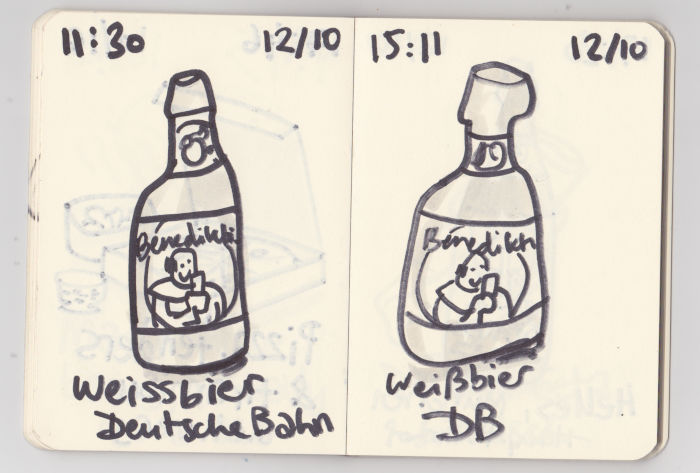 11:30 12/10
Benedikti
Weissbier
Deutsche Bahn
15:11 12/10
Benedikti
Weißbier
DB